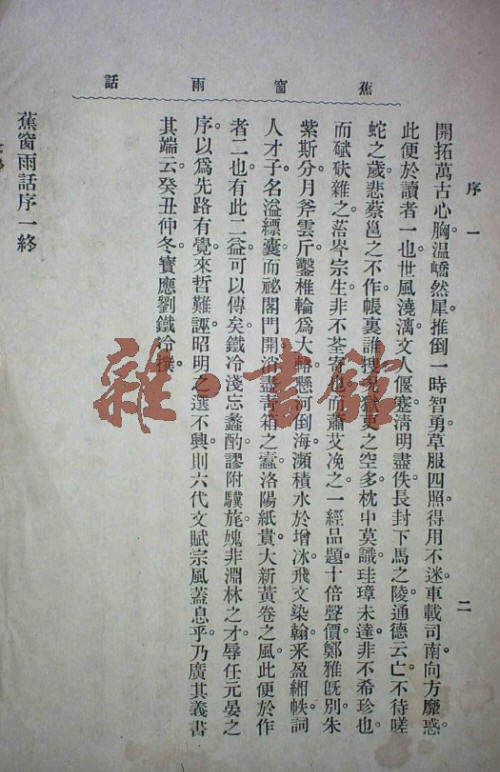 蕉窗雨話
序一
二
開拓萬古心胸。温嶠然犀。推倒一時智勇。草服四照。得用不迷。車載司南。向方靡惑。
此便於讀者一也。世風澆漓。文人偃蹇。清明盡佚。長封下馬之陵。通德云亡。不待嗟
蛇之歲。悲蔡邕之不作。帳裏誰搜。更之空多。枕中莫識。珪璋未達。非不希珍也。
而碔砆雜之。岑宗生。非不荃寄也。而蕭艾凂之。一經品題。十倍聲價。鄭雅旣別。朱
紫斯分。月斧雲斤。鑿椎輪爲大輅。懸河倒海。瀕積水於增冰。飛文染翰。采盈緗帙。詞
人才子。名溢縹囊。而祕閣門開。消盡靑箱之蠧。洛陽紙貴。大新黃卷之風。此便於作
者二也。有此二益。可以傳矣。鐵冷淺忘蠡酌。謬附驥旄。媿非淵林之才。辱任元晏之
序。以爲先路。有覺來哲難誣。昭明之選不興。則六代文賦宗風蓋息乎。乃廣其義。書
其端云。癸丑仲冬。寶應劉鐵冷撰。
蕉窗雨話序一終
雜·書館